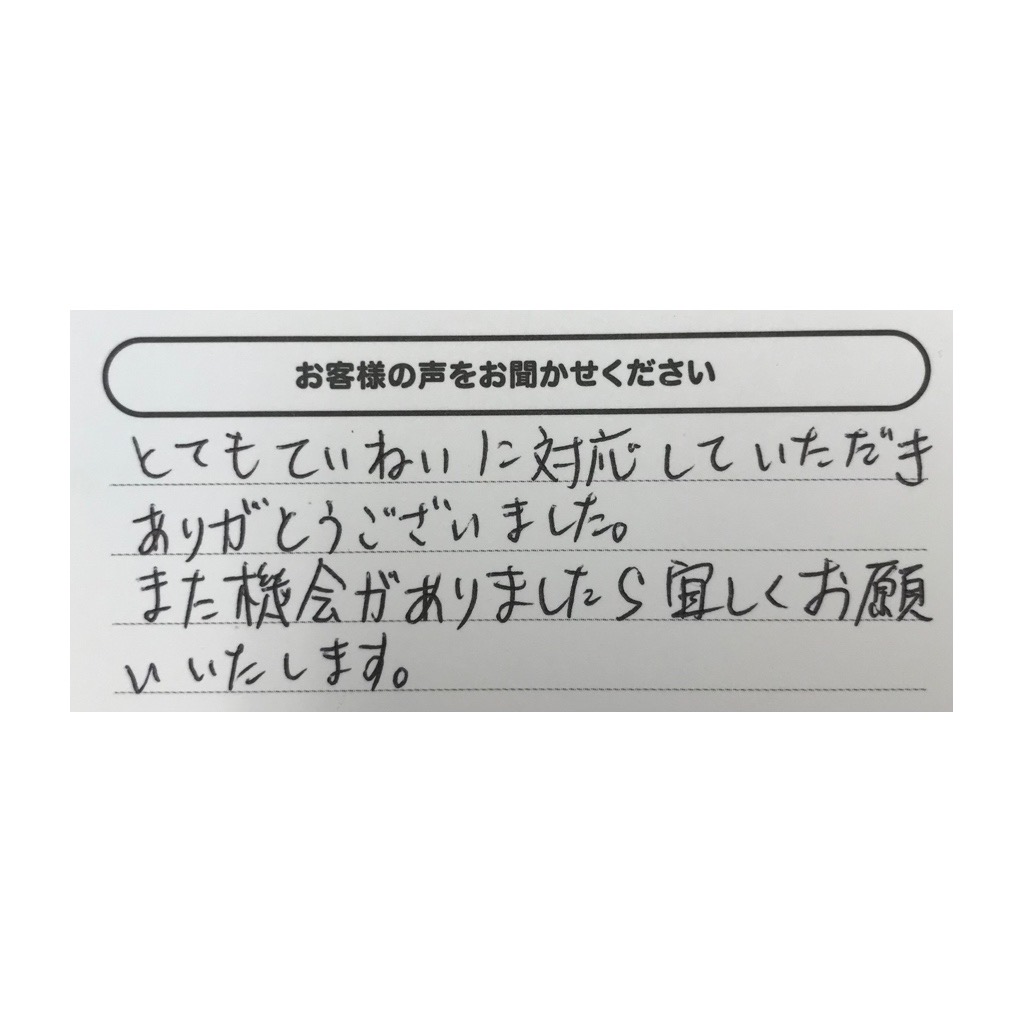 お客様の声をお聞かせください
とてもていねいに対応していただき
ありがとうございました。
また機会がありましたら宜しくお願
いいたします。